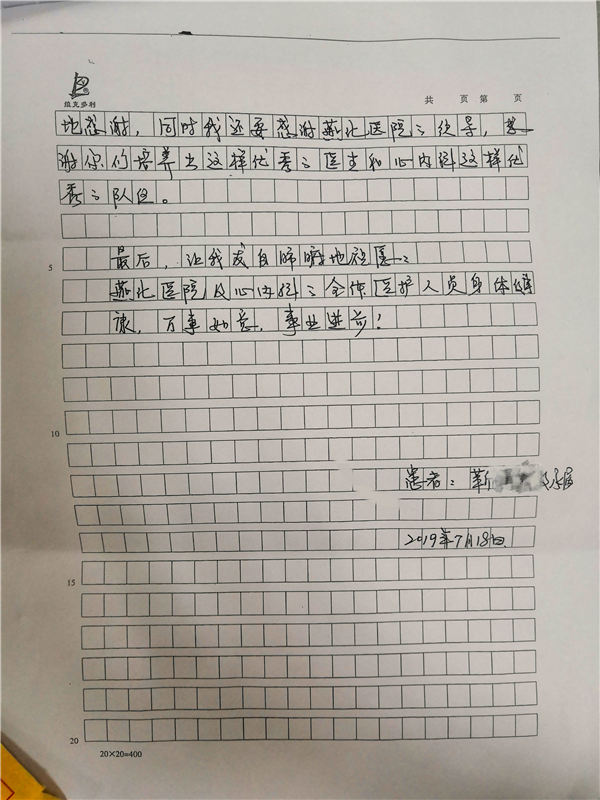 维克多利
共 页 第 页
地感谢，同时我还要感谢燕化医院之领导，感
谢你们培养出这样优秀之医生和心内科这样优
秀之队伍。
5
最后，让我发自肺腑地祝愿：
燕化医院及心内科之全体医护人员身体健
康，万事如意，事业进步！
10
患者：靳
2019年7月18日
15
20
20×20=400